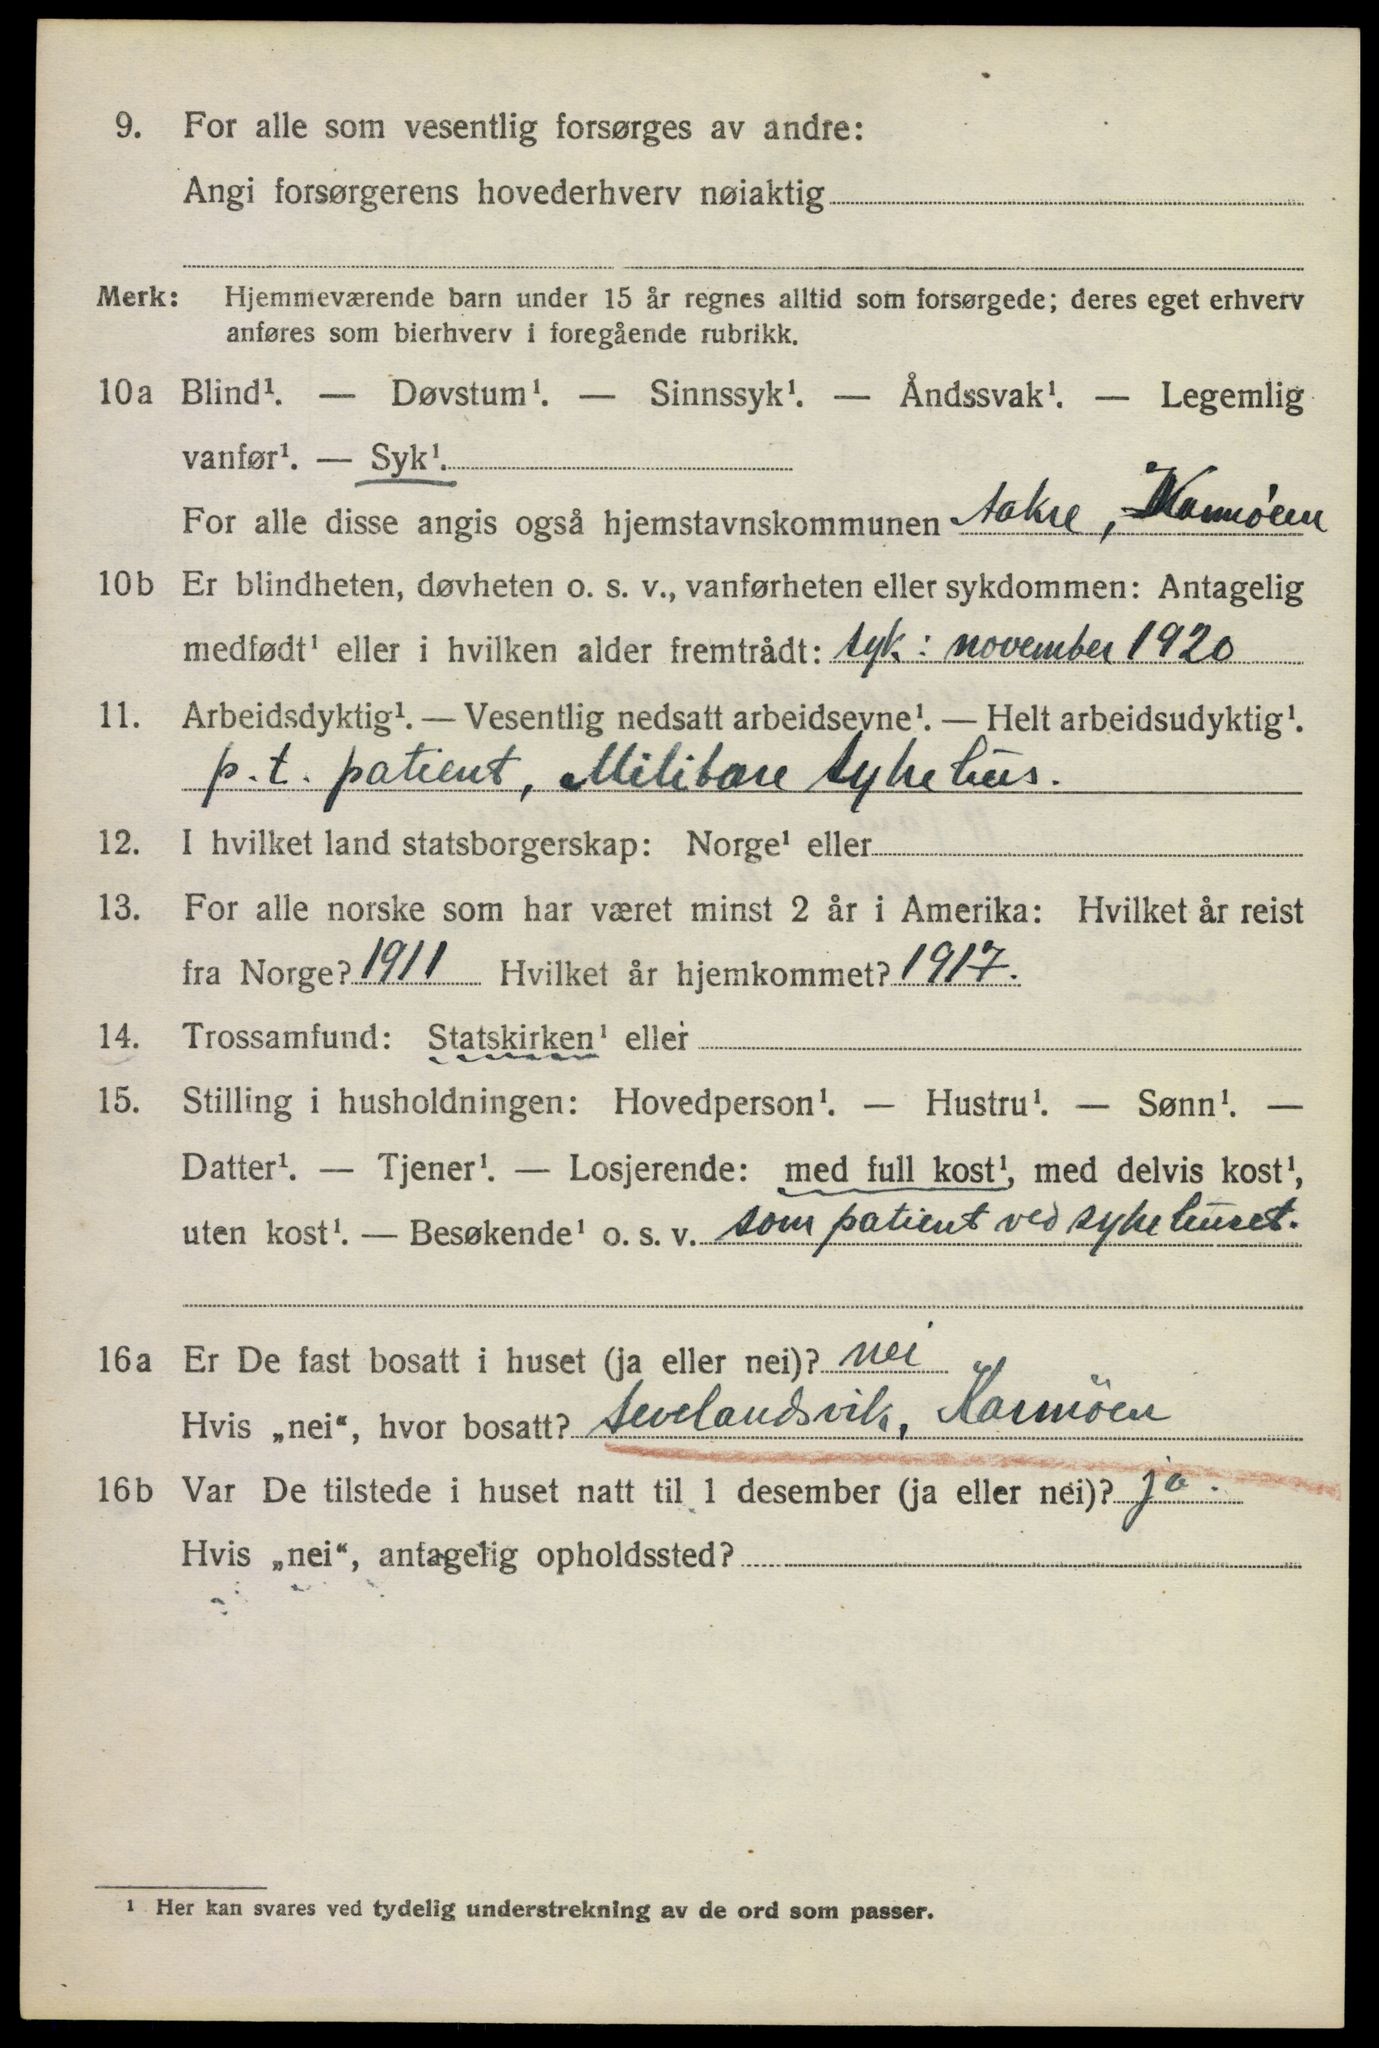 9. For alle som vesentlig forsørges av andre:
Angi forsørgerens hovederhverv nøiaktig
Merk: Hjemmeværende barn under 15 år regnes alltid som forsørgede; deres eget erhverv
anføres som bierhverv i foregående rubrikk.
10a Blind¹. — Døvstum¹. — Sinnssyk¹. — Åndssvak¹. — Legemlig
vanfør¹. — Syk¹.
For alle disse angis også hjemstavnskommunen Aakre, Karmöen
10b Er blindheten, døvheten o. s. v., vanførheten eller sykdommen: Antagelig
medfødt¹ eller i hvilken alder fremtrådt: syk: november 1920
11. Arbeidsdyktig¹. — Vesentlig nedsatt arbeidsevne¹. — Helt arbeidsudyktig¹.
p.t. patient, Militære sykehus.
12. I hvilket land statsborgerskap: Norge¹ eller
13. For alle norske som har været minst 2 år i Amerika: Hvilket år reist
fra Norge? 1911 Hvilket år hjemkommet? 1917.
14. Trossamfund: Statskirken¹ eller
15. Stilling i husholdningen: Hovedperson¹. — Hustru¹. — Sønn¹. —
Datter¹. — Tjener¹. — Losjerende: med full kost¹, med delvis kost¹,
uten kost¹. — Besøkende¹ o. s. v. som patient ved sykehuset.
16a Er De fast bosatt i huset (ja eller nei)? nei
Hvis „nei“, hvor bosatt? Sevelandsvik, Karmöen
16b Var De tilstede i huset natt til 1 desember (ja eller nei)? ja.
Hvis „nei“, antagelig opholdssted?
¹ Her kan svares ved tydelig understrekning av de ord som passer.